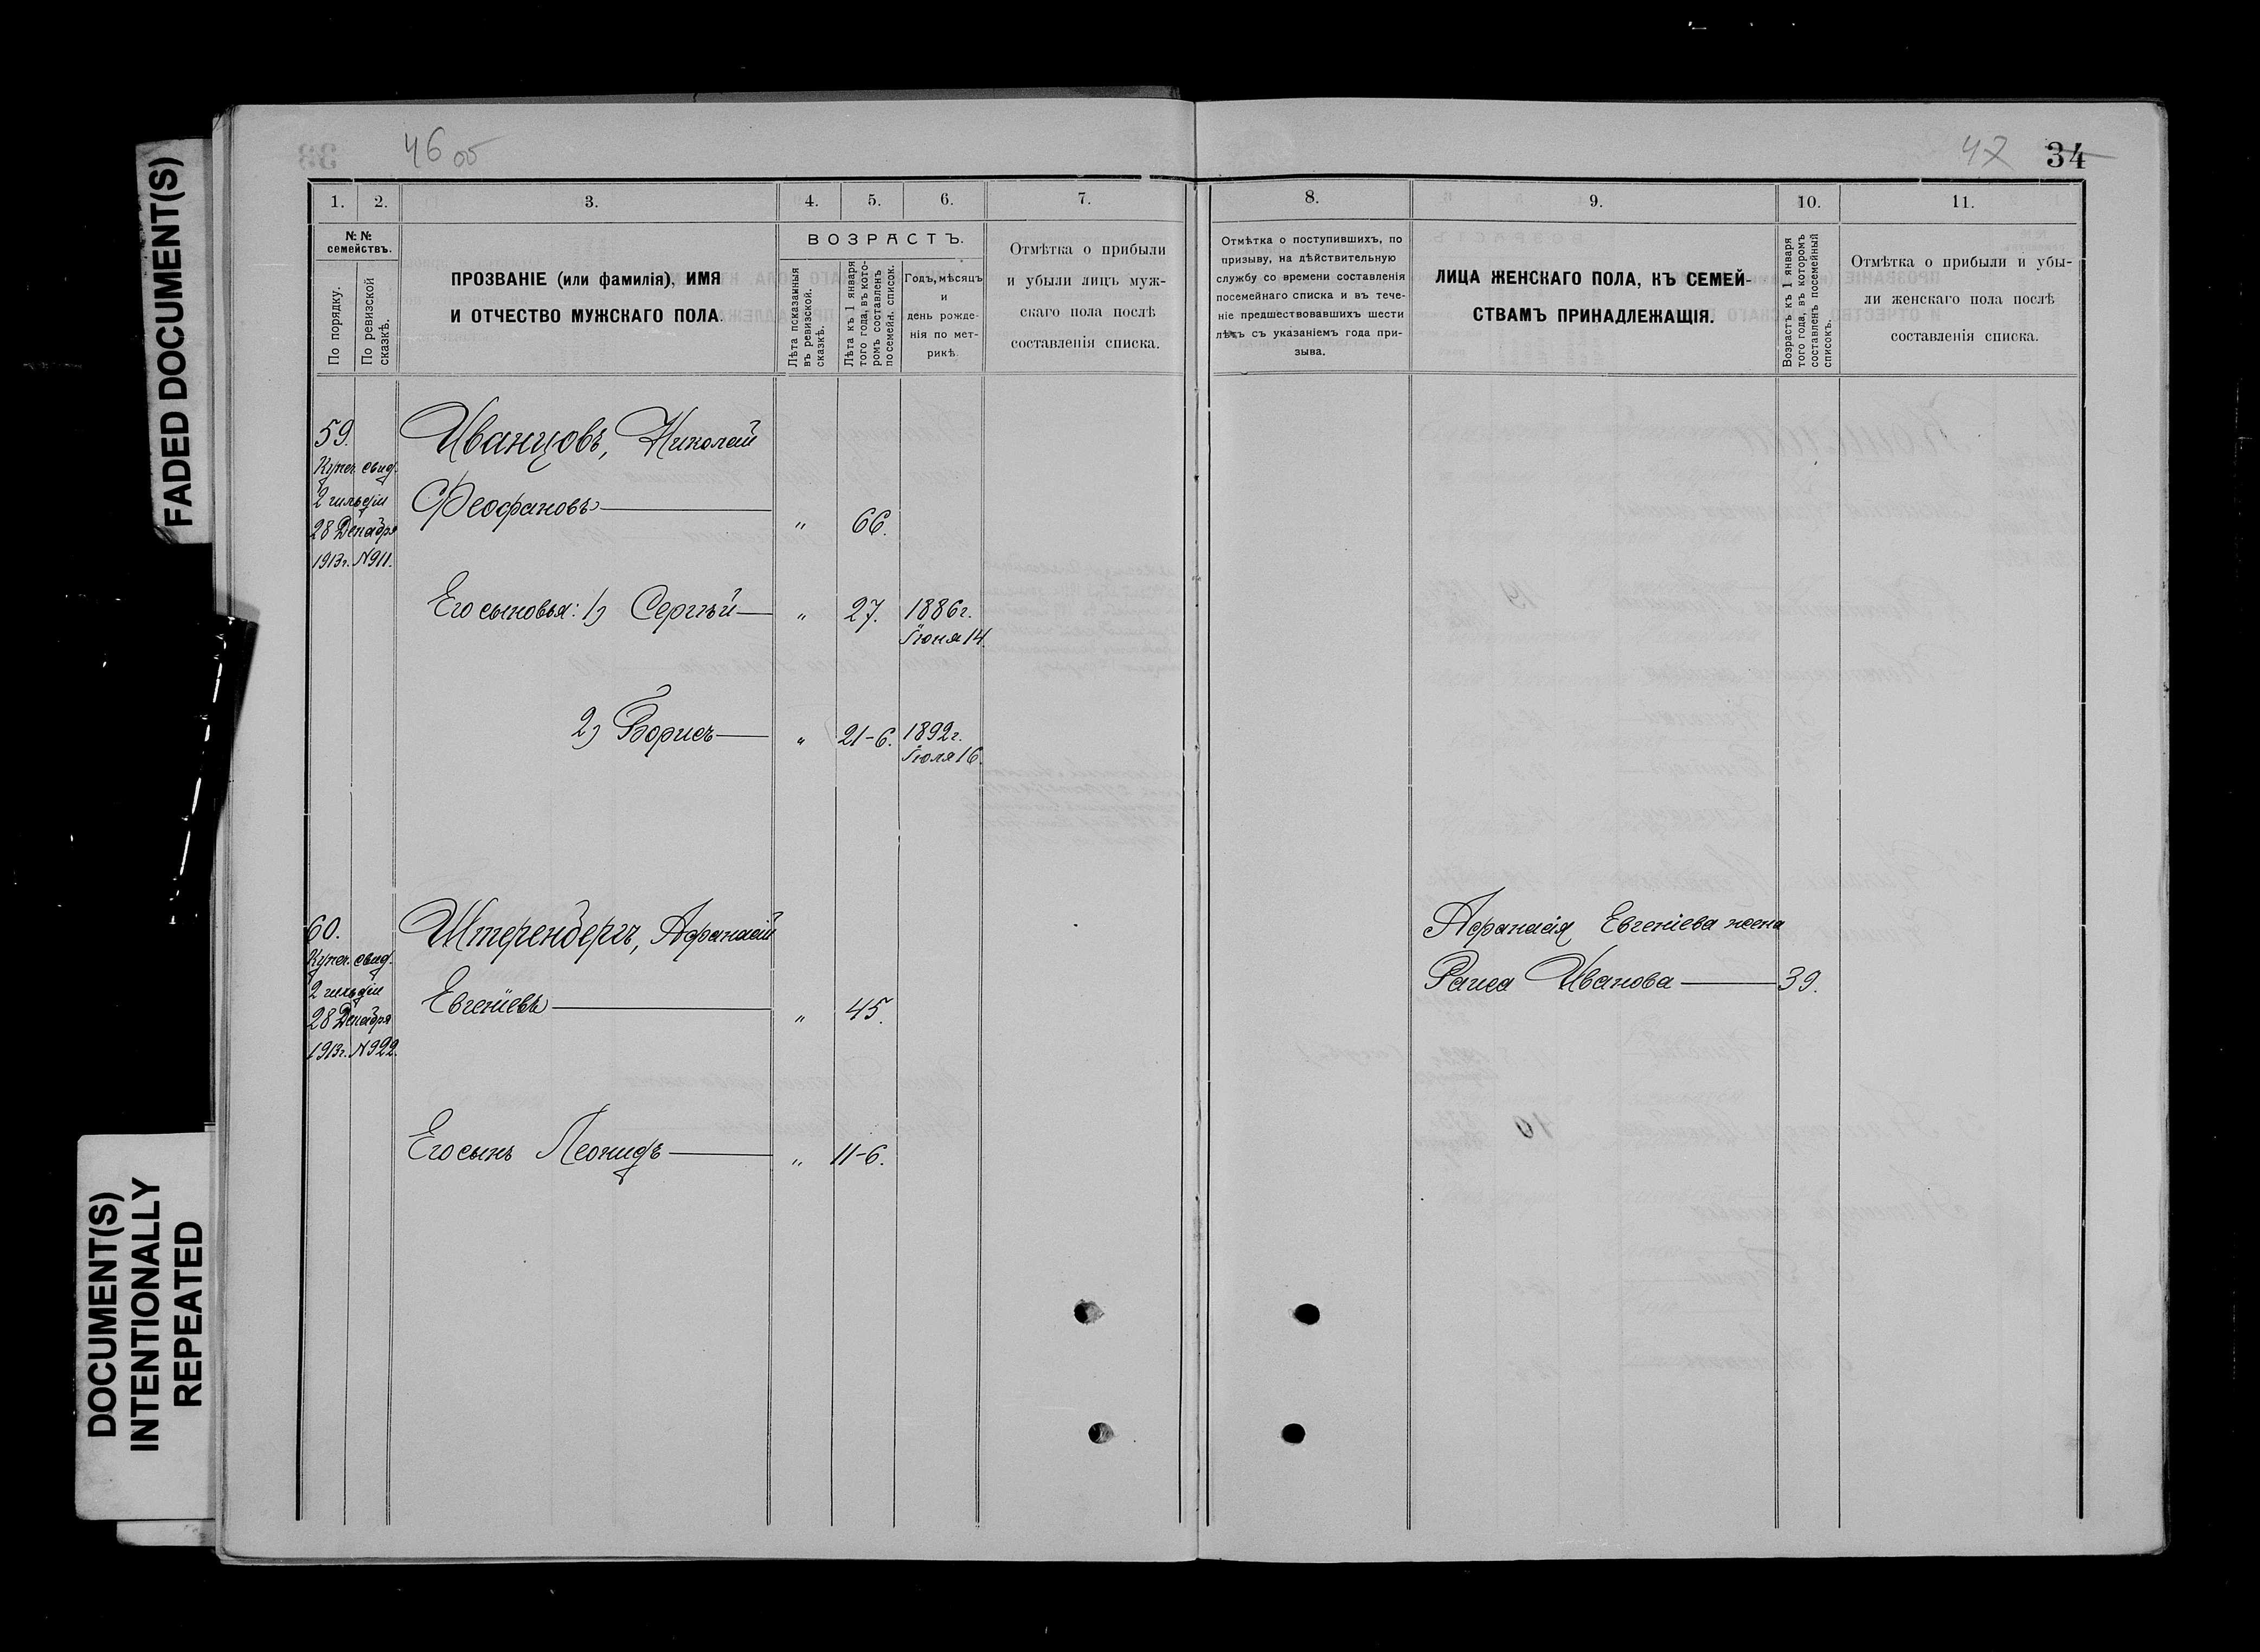 FADED DOCUMENT(S)
DOCUMENT(S)
INTENTIONALLY
REPEATED
46 об
1.
2.
3.
4.
5.
6.
7.
№ №
семействъ.
По порядку.
По ревизской
сказкѣ.
ПРОЗВАНІЕ (или фамилія), ИМЯ
И ОТЧЕСТВО МУЖСКАГО ПОЛА.
ВОЗРАСТЪ.
Лѣта показанныя
въ ревизской.
сказкѣ.
Лѣта къ 1 января
того года, въ кото-
ромъ составленъ
посемейн. список.
Годъ, мѣсяцъ
и
день рожде-
нія по мет-
рикѣ.
Отмѣтка о прибыли
и убыли лицъ муж-
скаго пола послѣ
составленія списка.
59.
Купеч. свид.
2 гильдіи
28 Декабря
1913г. №911.
Иванцовъ, Николай
Ѳеофановъ
" 66.
Его сыновья: 1) Сергѣй " 27. 1886г.
Іюня 14.
2) Борисъ " 21-6. 1892г.
Іюля 16.
60.
Купеч. свид.
2 гильдіи
28 Декабря
1913г. №922.
Штеренбергъ, Афанасій
Евгеніевъ " 45.
Его сынъ Леонидъ " 11-6.
47
34
8.
9.
10.
11.
Отмѣтка о поступившихъ, по
призыву, на дѣйствительную
службу со времени составленія
посемейнаго списка и въ тече-
ніе предшествовавшихъ шести
лѣтъ съ указаніемъ года при-
зыва.
ЛИЦА ЖЕНСКАГО ПОЛА, КЪ СЕМЕЙ-
СТВАМЪ ПРИНАДЛЕЖАЩІЯ.
Возрастъ къ 1 января
того года, въ которомъ
составленъ посемейный
списокъ.
Отмѣтка о прибыли и убы-
ли женскаго пола послѣ
составленія списка.
Афанасія Евгеніева жена
Раиса Иванова 39.